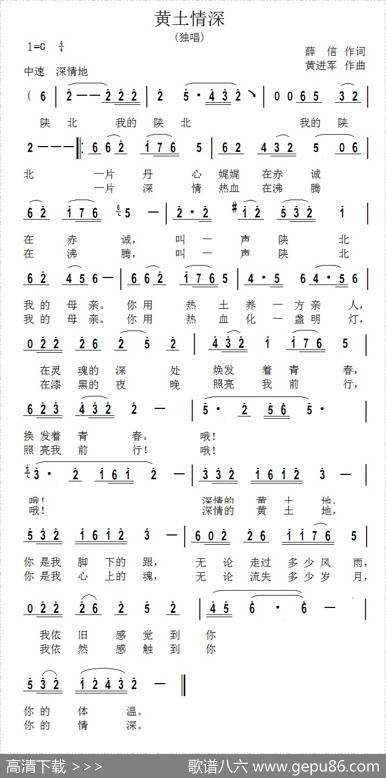 黄土情深
(独唱)
1=C 4/4
薛 信 作词
中速 深情地
黄进军 作曲
陕 北 我的 陕 北 我的 陕
北 一片 丹 心 娓娓 在赤 诚
一片 深 情 热血 在沸 腾
在 赤 诚, 叫 一 声 陕 北
在 沸 腾, 叫 一 声 陕 北
我 的 母 亲。你 用 热 土 养 一 方 亲 人,
我 的 母 亲。你 用 热 血 化 一 盏 明 灯,
在灵 魂的 深 处 焕发 着 青 春,
在漆 黑的 夜 晚 照亮 我 前 行,
换 发着 青 春。 哦!
照 亮我 前 行! 哦!
哦! 深情的 黄 土 地,
哦! 深情的 黄 土 地,
你 是我 脚 下的 跟, 无 论 走过 多 少 风 雨,
你 是我 心 上的 魂, 无 论 流失 多 少 岁 月,
我依 旧 感 觉 到 你
我依 然 感 触 到 你
你 的 体 温。
你 的 情 深。
高清下载 >>>
歌谱八六 www.gepu86.com